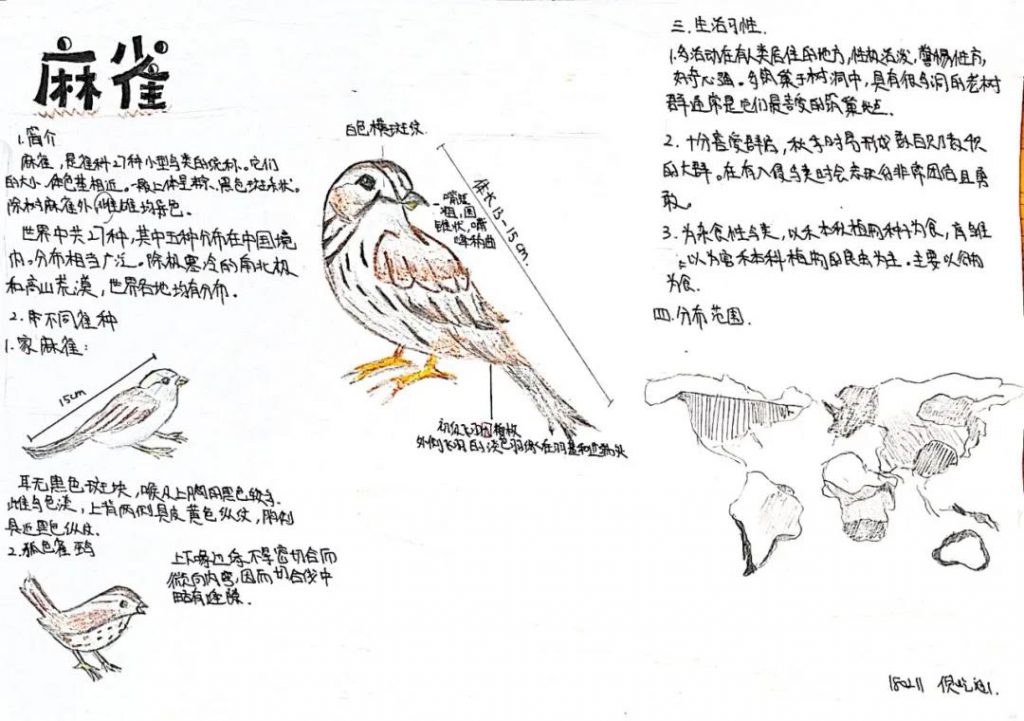 麻雀
1.简介
麻雀,是雀科27种小型鸟类的统称.它们
的大小、体色甚相近。一般上体呈棕、黑色斑杂状.
除树麻雀外,雌雄均异色.
世界中共27种,其中五种分布在中国境
内.分布相当广泛.除极寒冷的南北极
和高山荒漠,世界各地均有分布.
2.不同雀种
1.家麻雀:
15cm
耳无黑色斑块,喉及上胸的黑色较
雌鸟色淡,上背两侧具皮黄色纵纹,胸侧
具近黑色纵纹.
2.狐色雀鹀
上下喙边缘不紧密切合而
微向内弯,因而切合线中
略有缝隙.
白色横斑纹
体长13-15cm.
嘴短
粗,圆
锥状,嘴
峰稍曲
初级飞羽
外侧飞羽的淡色羽缘在羽基和近端处
三.生活习性.
1.多活动在有人类居住的地方,性极活泼,警惕性高,
好奇心强.多筑巢于树洞中,具有很多洞的老树
群通常是它们最喜爱的筑巢地点.
2.十分喜爱群居,秋季时易形成数百只数
的大群.在有入侵鸟类时会表现得非常团结且勇
敢.
3.为杂食性鸟类,以禾本科植物种子为食,育雏
以为害禾本科植物的昆虫为主.主要以谷物
为食.
四.分布范围.